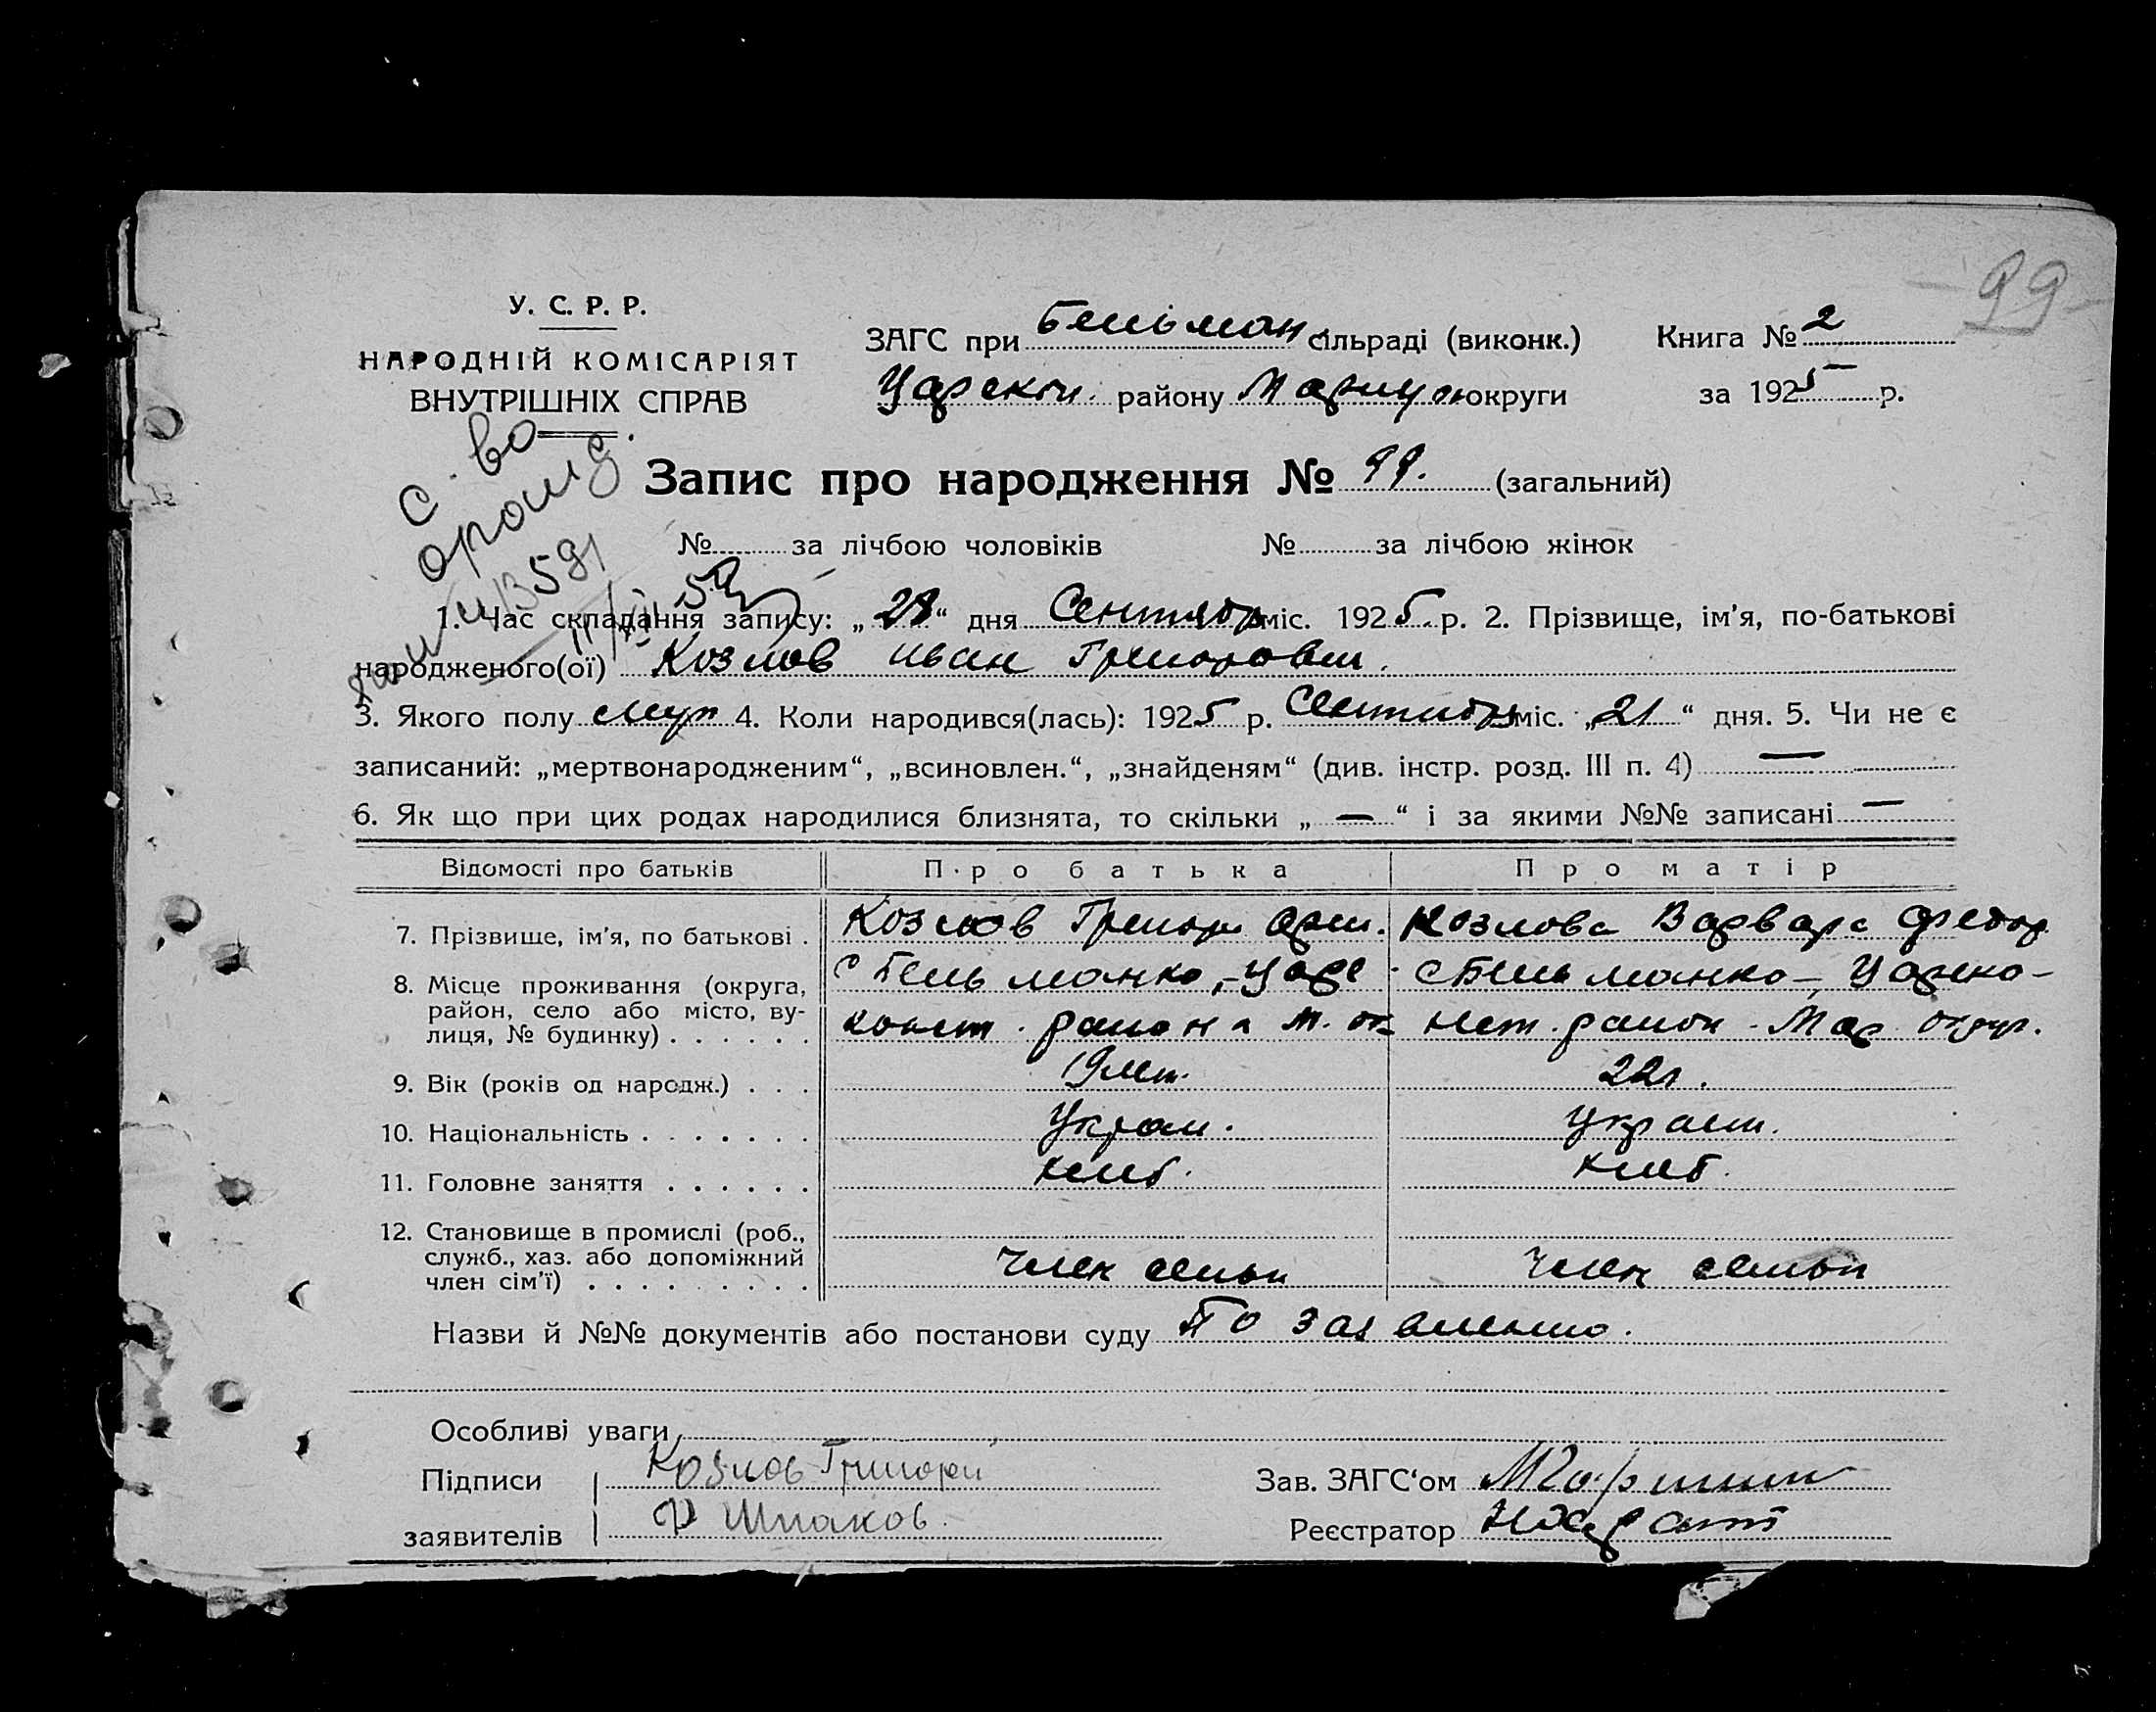 99
У. С. Р. Р.
НАРОДНІЙ КОМІСАРІЯТ
ВНУТРІШНІХ СПРАВ
ЗАГС при Бельман. сільраді (виконк.) Книга № 2
Царекон. району Мариуп. округи за 1925 р.
Запис про народження № 99. (загальний)
№ за лічбою чоловіків № за лічбою жінок
с. во
1. Час складання запису: „28“ дня Сентябр міс. 1925. р. 2. Прізвище, ім’я, по-батькові
народженого(ої) Козлов Иван Григорович.
3. Якого полу муж 4. Коли народився(лась): 1925 р. Сентября міс. „21“ дня. 5. Чи не є
записаний: „мертвонародженим“, „всиновлен.“, „знайденям“ (див. інстр. розд. III п. 4) —
6. Як що при цих родах народилися близнята, то скільки „—“ і за якими №№ записані —
Відомості про батьків Про батька Про матір
7. Прізвище, ім’я, по батькові . Козлов Григори Козлова Варвара Федор
8. Місце проживання (округа, с Бельманко, - Царе с Бельманко -, Цареко-
район, село або місто, ву- конст. района М. ок нст. район - Мар. округ.
лиця, № будинку) . . . . . .
9. Вік (років од народж.) . . . 19 лет. 22 г.
10. Національність . . . . . . . Украи. Украин.
11. Головне заняття . . . . . . хлеб. хлеб.
12. Становище в промислі (роб.,
служб., хаз. або допоміжний член семьи член семьи
член сім’ї) . . . . . . . . .
Назви й №№ документів або постанови суду По заявлению.
Особливі уваги
Підписи Козлов Григори Зав. ЗАГС‘ом
заявителів Ф Шпаков. Реєстратор